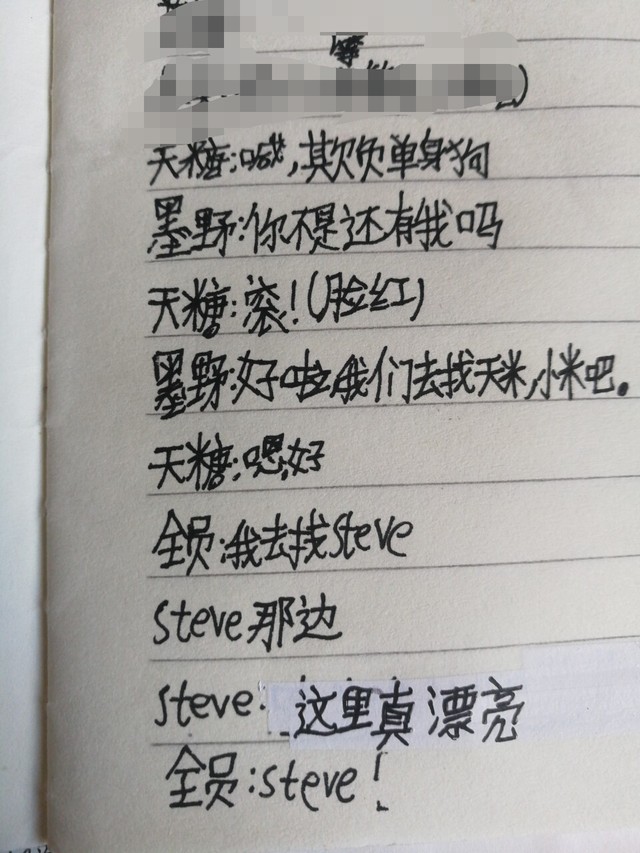 天糖:喊,欺负单身狗
墨野:你不是还有我吗
天糖:滚!(脸红)
墨野:好啦,我们去找天米,小米吧。
天糖:嗯,好
全员:我去找steve
steve那边
steve: 这里真漂亮
全员:steve!